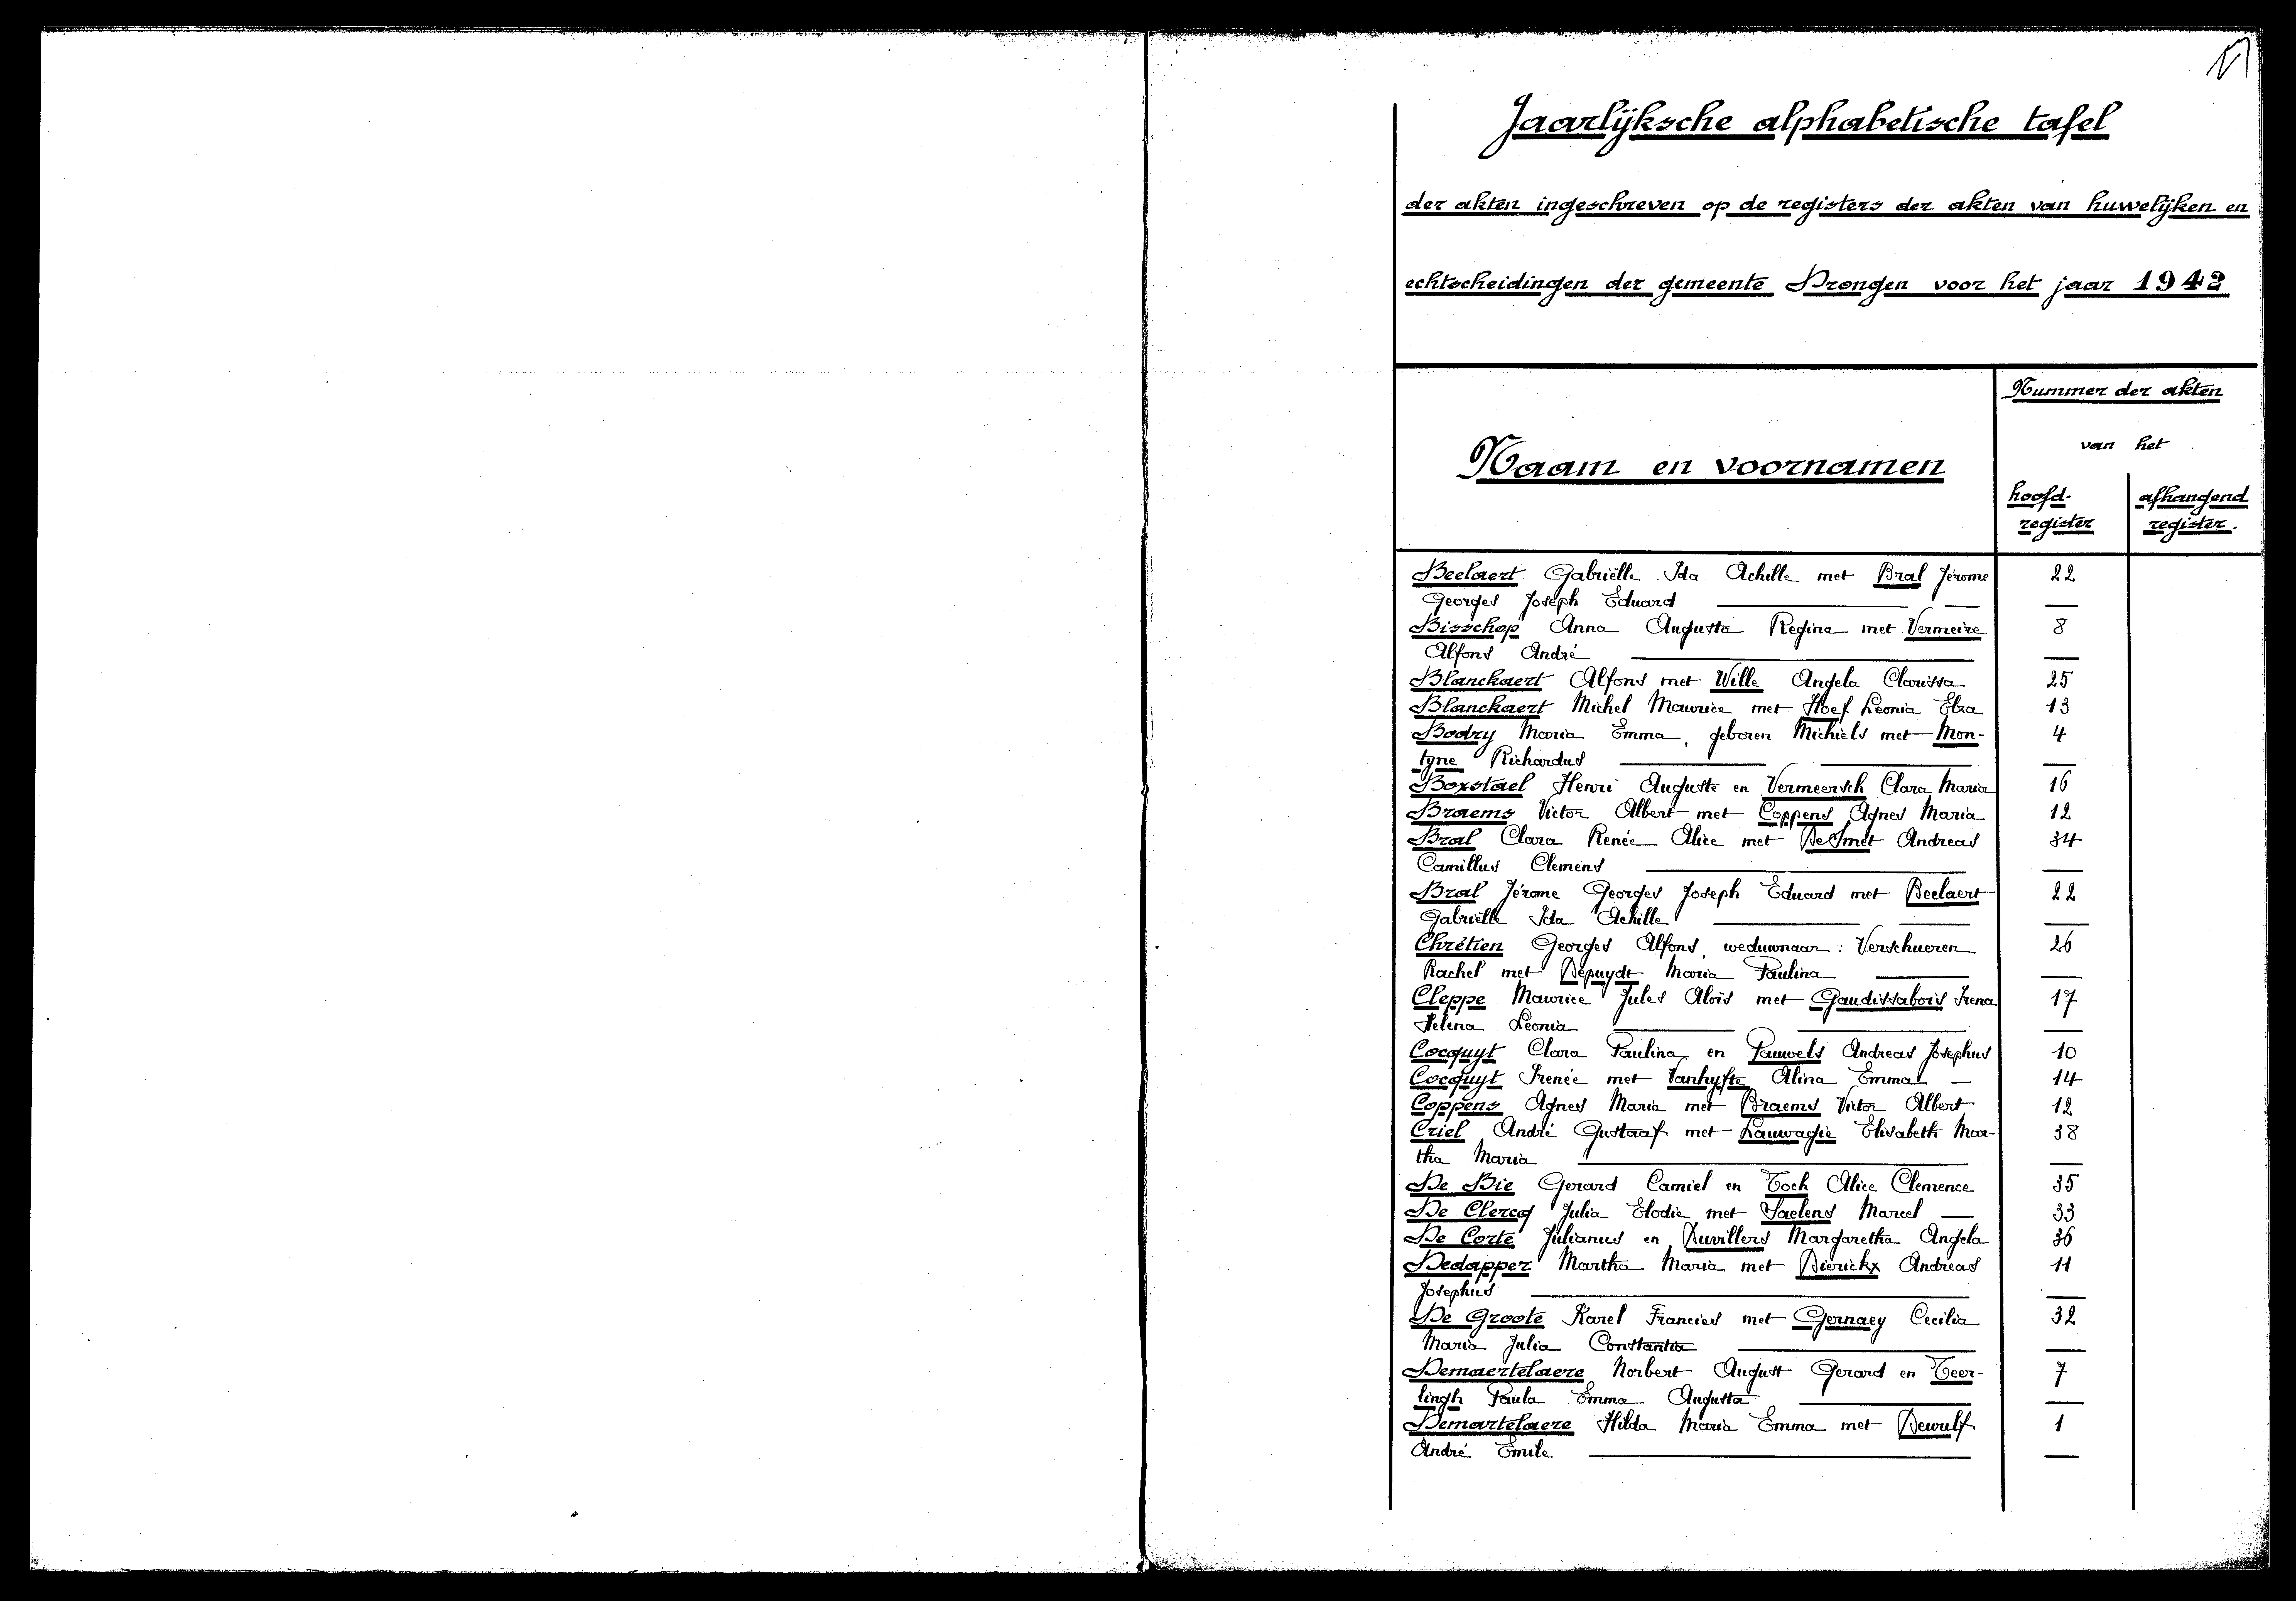 Jaarlijksche alphabetische tafel
der akten ingeschreven op de registers der akten van huwelijken en
echtscheidingen der gemeente Drongen voor het jaar 1942
Nummer der akten
van het
Naam en voornamen
hoofd- register
afhangend register.
Beelaert Gabriëlle Ida Achille met Bral Jérome 22
Georges Joseph Eduard —
Bisschop Anna Augusta Regina met Vermeire 8
Alfons André —
Blanckaert Alfons met Wille Angela Clarissa 25
Blanckaert Michel Maurice met Hoef Leonia Elza 13
Bodry Maria Emma, geboren Michiels met Mon- 4
tyne Richardus —
Boxstael Henri Auguste en Vermeersch Clara Maria 16
Braems Victor Albert met Coppens Agnes Maria 12
Bral Clara Renée Alice met De Smet Andreas 34
Camillus Clemens —
Bral Jérome Georges Joseph Eduard met Beelaert 22
Gabriëlle Ida Achille —
Chrétien Georges Alfons, weduwnaar: Verschueren 26
Rachel met Depuydt Maria Paulina —
Cleppe Maurice Jules Aloïs met Gaudissabois Irena 17
Helena Leonia —
Cocquyt Clara Paulina en Pauwels Andreas Josephus 10
Cocquyt Irenée met Vanhyfte Alina Emma — 14
Coppens Agnes Maria met Braems Victor Albert 12
Criel André Gustaaf met Lauwagie Elisabeth Mar- 38
tha Maria —
De Bie Gerard Camiel en Toch Alice Clemence 35
De Clercq Julia Elodie met Saelens Marcel — 33
De Corte Julianus en Duvillers Margaretha Angela 36
Dedapper Martha Maria met Dierickx Andreas 11
Josephus —
De Groote Karel Francies met Gernaey Cecilia 32
Maria Julia Constantia —
Demaertelaere Norbert August Gerard en Teer- 7
lingh Paula Emma Augusta —
Demartelaere Hilda Maria Emma met Dewulf 1
André Emile —